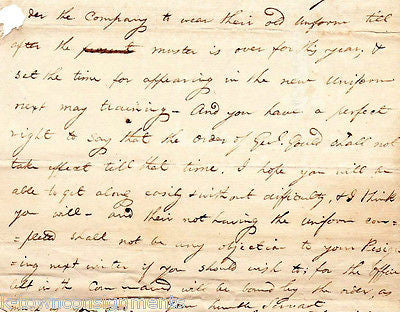 der the Company to wear their old Uniform till
after the present muster is over for this year, &
set the time for appearing in the new Uniform
next may training - And you have a perfect
right to say that the order of Genl. Gould shall not
take effect till that time. I hope you will be
able to get along easily & without difficulty, & I think
you will - and their not having the Uniform com-
=pleted shall not be any objection to your Resign-
=ing next winter if you should wish to; for the Officer
left in the Command will be bound by the order, as
k-townconsignments
humble Servant